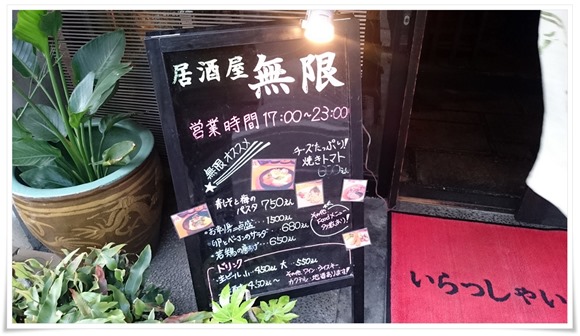 居酒屋 無限
営業時間 17:00〜23:00
無限オススメ
チーズたっぷり!
焼きトマト
青じそと梅の
パスタ 750
お刺身三点盛… 1500
卵とベーコンのサラダ… 680
若鶏の唐揚げ… 650
その他
Foodメニュー
多数あり!
ドリンク
生ビール 小…450 大…550
その他、ワイン・ウイスキー
カクテル・地酒あります!
いらっしゃい